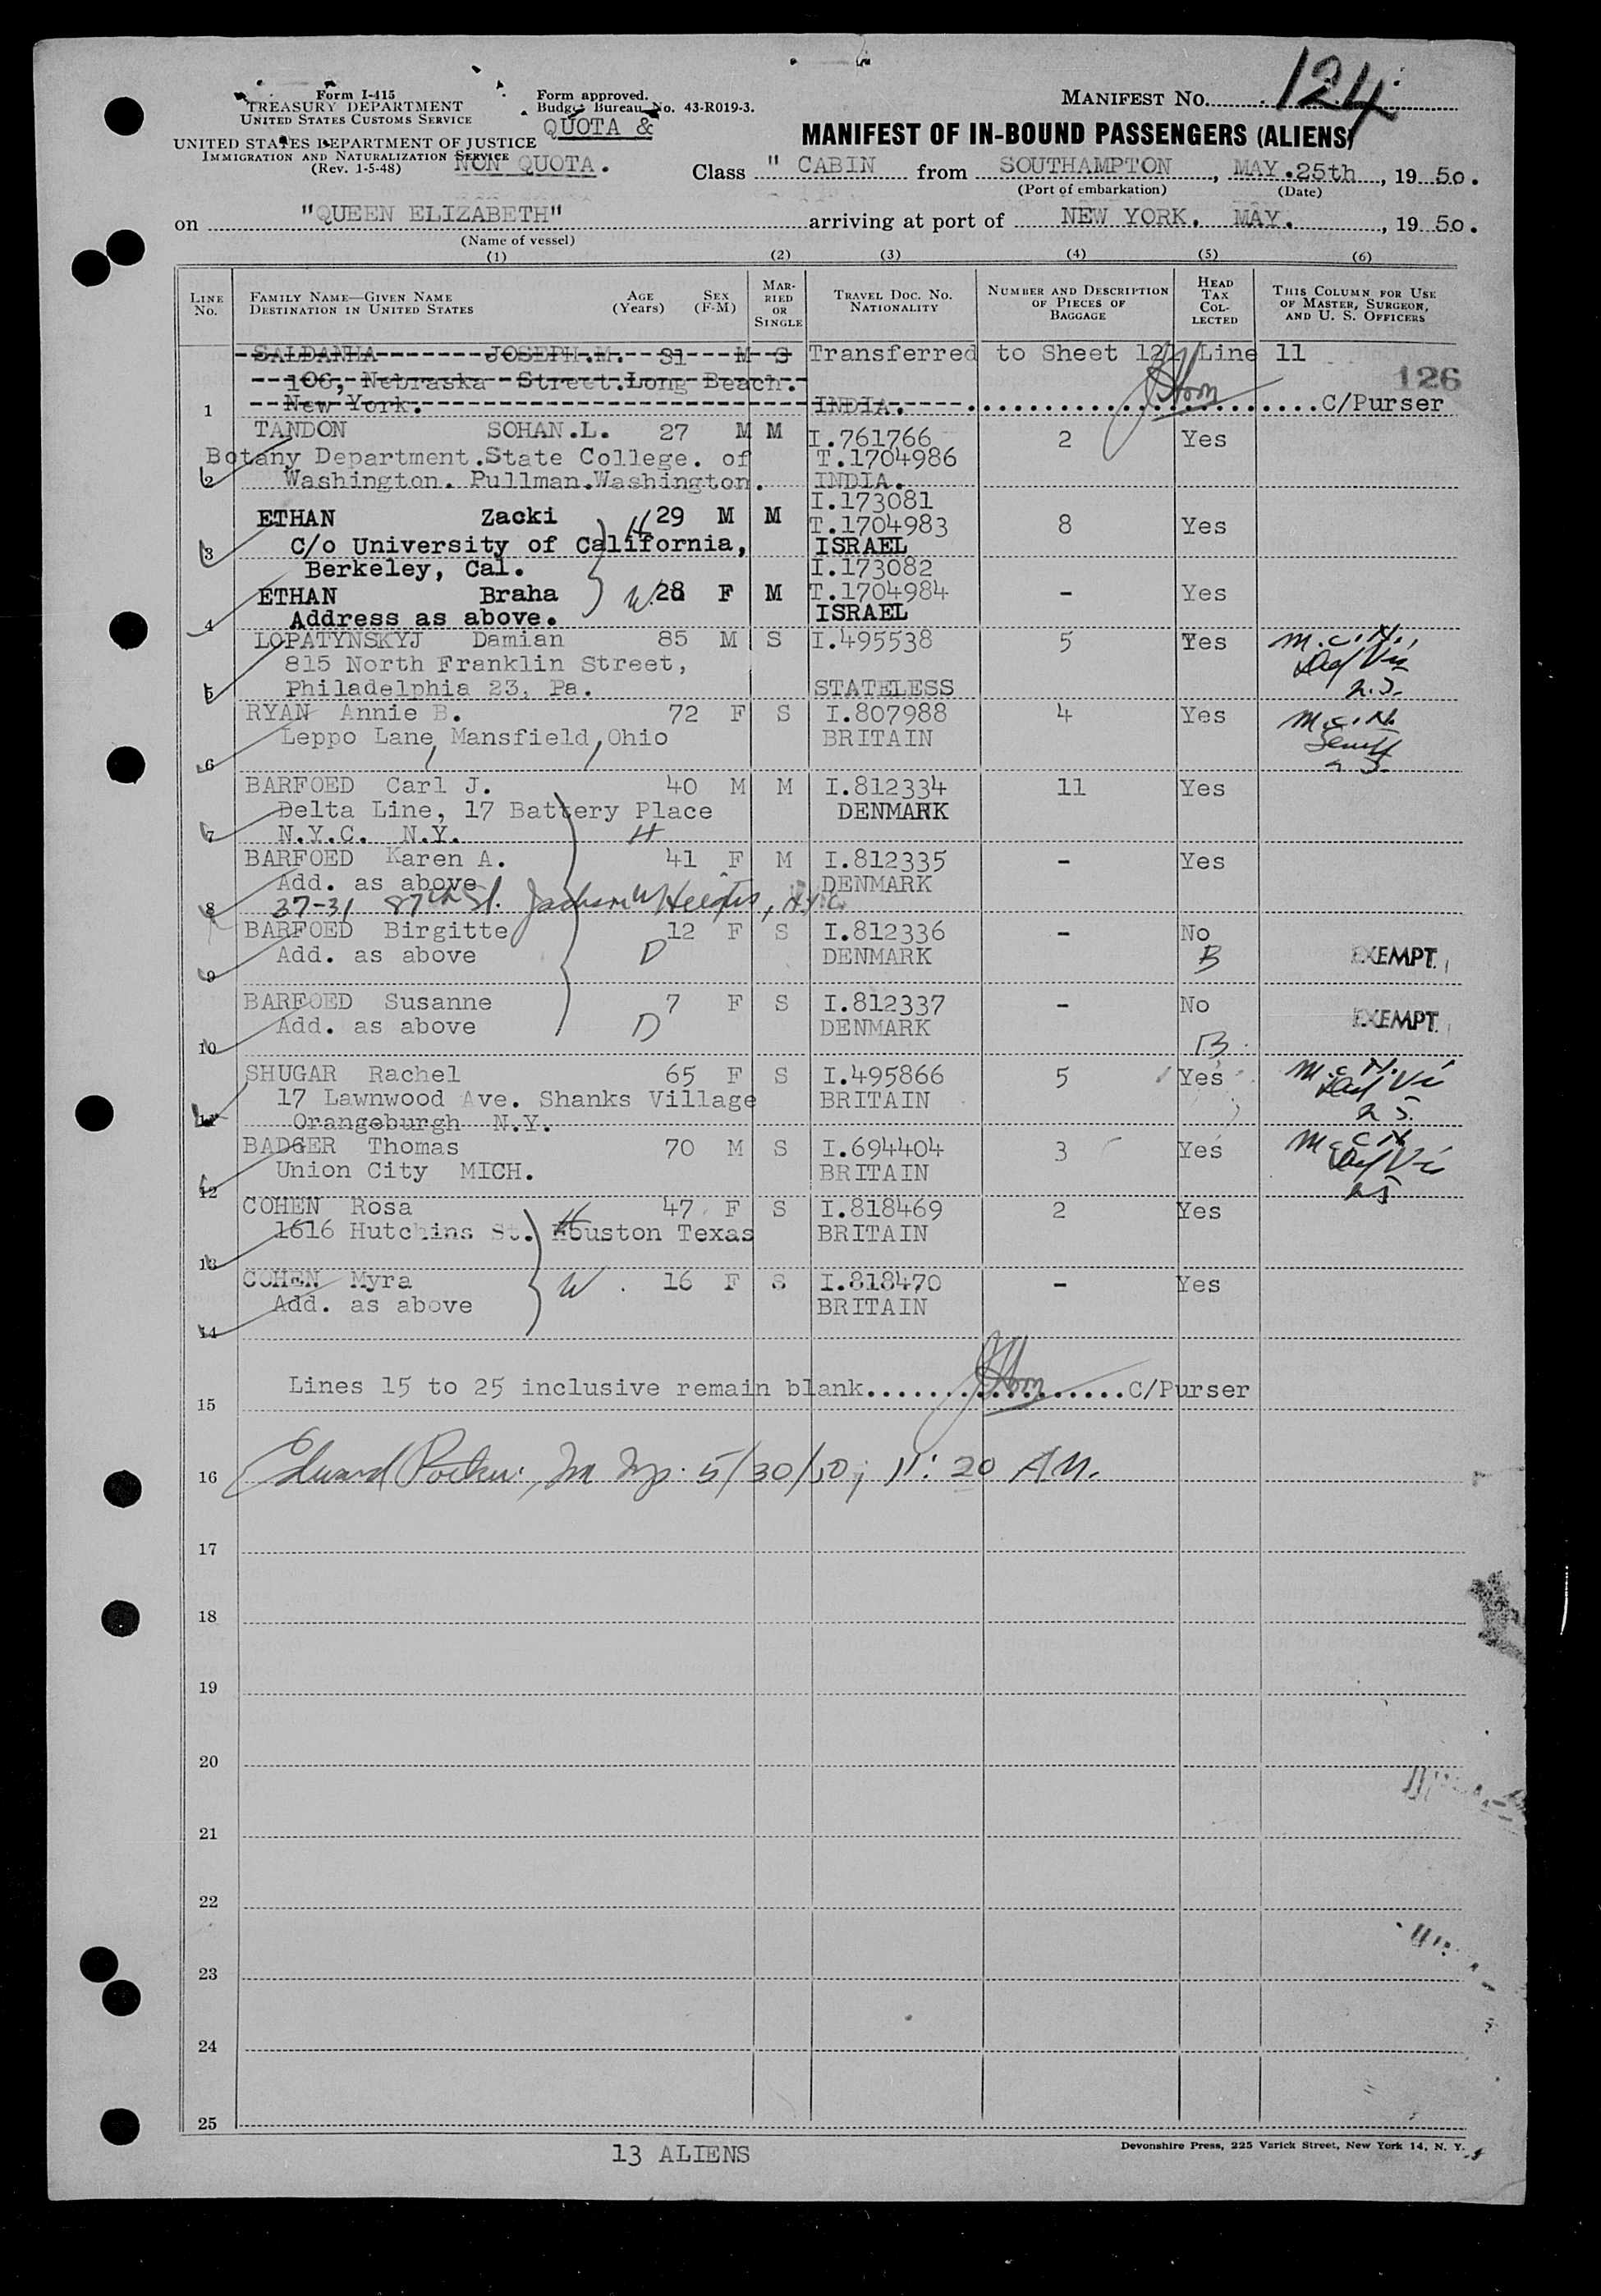 124
Form I-415
TREASURY DEPARTMENT
UNITED STATES CUSTOMS SERVICE
UNITED STATES DEPARTMENT OF JUSTICE
IMMIGRATION AND NATURALIZATION SERVICE
(Rev. 1-5-48)
Form approved.
Budget Bureau No. 43-R019-3.
QUOTA &
NON QUOTA.
MANIFEST No.
MANIFEST OF IN-BOUND PASSENGERS (ALIENS)
Class " CABIN from SOUTHAMPTON, MAY.25th, 19 50.
(Port of embarkation) (Date)
on "QUEEN ELIZABETH" arriving at port of NEW YORK. MAY., 19 50.
(Name of vessel)
(1) (2) (3) (4) (5) (6)
LINE No. FAMILY NAME—GIVEN NAME DESTINATION IN UNITED STATES AGE (Years) SEX (F-M) MARRIED OR SINGLE TRAVEL DOC. NO. NATIONALITY NUMBER AND DESCRIPTION OF PIECES OF BAGGAGE HEAD TAX COLLECTED THIS COLUMN FOR USE OF MASTER, SURGEON, AND U. S. OFFICERS
SALDANHA JOSEPH.M. 31 M S Transferred to Sheet 121 Line 11
106, Nebraska Street.Long Beach. 126
1 New York. INDIA. C/Purser
TANDON SOHAN.L. 27 M M I.761766 2 Yes
Botany Department.State College. of T.1704986
2 Washington. Pullman.Washington. INDIA.
I.173081
ETHAN Zacki H 29 M M T.1704983 8 Yes
3 C/o University of California, ISRAEL
Berkeley, Cal. I.173082
ETHAN Braha W. 28 F M T.1704984 - Yes
4 Address as above. ISRAEL
LOPATYNSKYJ Damian 85 M S I.495538 5 Yes M.C.N.,
815 North Franklin Street,
5 Philadelphia 23, Pa. STATELESS
RYAN Annie B. 72 F S I.807988 4 Yes M.C.N.
Leppo Lane, Mansfield, Ohio BRITAIN
6
BARFOED Carl J. 40 M M I.812334 11 Yes
Delta Line, 17 Battery Place DENMARK
7 N.Y.C. N.Y. H
BARFOED Karen A. 41 F M I.812335 - Yes
Add. as above W DENMARK
8 37-31 87th St. Jackson Heights, N.Y.C.
BARFOED Birgitte 12 F S I.812336 - No
Add. as above D DENMARK B EXEMPT
9
BARFOED Susanne 7 F S I.812337 - No
Add. as above D DENMARK EXEMPT
10 B
SHUGAR Rachel 65 F S I.495866 5 Yes M.C.N.
17 Lawnwood Ave. Shanks Village BRITAIN
11 Orangeburgh N.Y.
BADGER Thomas 70 M S I.694404 3 Yes M.C.N.
Union City MICH. BRITAIN
12
COHEN Rosa 47 F S I.818469 2 Yes
1616 Hutchins St. Houston Texas H BRITAIN
13
COHEN Myra W 16 F S I.818470 - Yes
Add. as above BRITAIN
14
Lines 15 to 25 inclusive remain blank C/Purser
15
16 Edward 5/30/50; 11:20 AM.
17
18
19
20
21
22
23
24
25
13 ALIENS
Devonshire Press, 225 Varick Street, New York 14, N. Y.